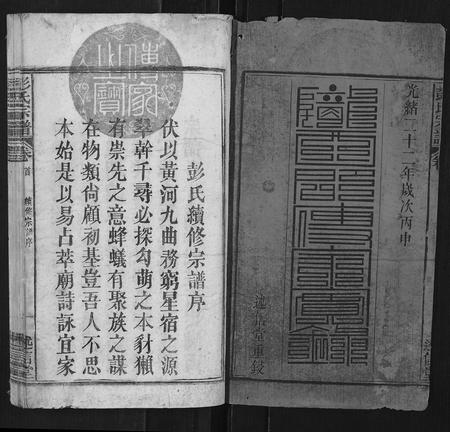 彭氏宗譜
光緒二十二年歲次丙申
重鋟
傳家之寶
彭氏續修宗譜序
伏以黃河九曲務窮星宿之源
翠幹千尋必探勾萌之本豺獺
有崇先之意蜂蟻有聚族之謀
在物類尚顧初基豈吾人不思
本始是以易占萃廟詩詠宜家
彭氏宗譜 卷首